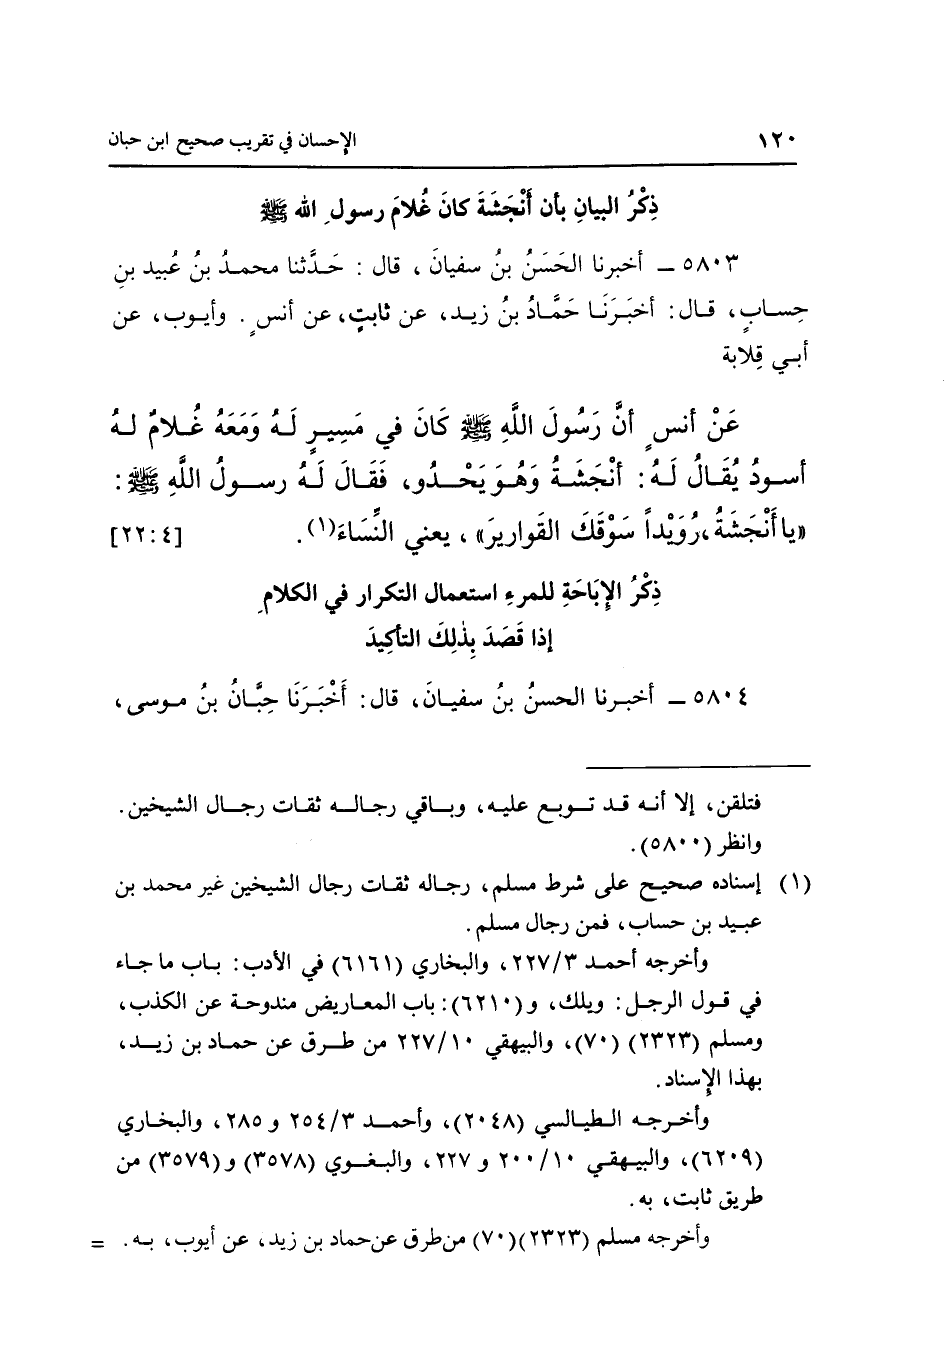 ١٢٠ الإحسان في تقريب صحيح ابن حبان
ذِكْرُ البيانِ بأن أَنْجَشَةَ كانَ غُلامَ رسولِ الله ﷺ
٥٨٠٣ ــ أخبرنا الحَسَنُ بنُ سفيانَ ، قال : حَدَّثنا محمدُ بنُ عُبيد بنِ
حِسابٍ، قال: أخبَرَنَا حَمَّادُ بنُ زيد، عن ثابتٍ، عن أنسٍ . وأيوب، عن
أبي قِلابة
عَنْ أنسٍ أنَّ رَسُولَ اللَّهِ ﷺ كَانَ في مَسِيرٍ لَهُ وَمَعَهُ غُلامٌ لهُ
أسودُ يُقَالُ لَهُ: أنْجَشَةُ وَهُوَ يَحْدُو، فَقَالَ لَهُ رسولُ اللَّهِ ﷺ:
«يا أَنْجَشَةُ، رُوَيْداً سَوْقَكَ القَواريرَ» ، يعني النِّسَاءَ(١). [٢٢:٤]
ذِكْرُ الإِبَاحَةِ للمرءِ استعمال التكرار في الكلامِ
إذا قَصَدَ بِذٰلِكَ التأكِيدَ
٥٨٠٤ ــ أخبرنا الحسنُ بن سفيانَ، قال: أَخْبَرَنَا حِبَّانُ بنُ موسى،
فتلقن، إلا أنه قد توبع عليه، وباقي رجاله ثقات رجال الشيخين.
وانظر (٥٨٠٠).
(١) إسناده صحيح على شرط مسلم، رجاله ثقات رجال الشيخين غير محمد بن
عبيد بن حساب، فمن رجال مسلم.
وأخرجه أحمد ٢٢٧/٣، والبخاري (٦١٦١) في الأدب: باب ما جاء
في قول الرجل: ويلك، و(٦٢١٠): باب المعاريض مندوحة عن الكذب،
ومسلم (٢٣٢٣) (٧٠)، والبيهقي ٢٢٧/١٠ من طرق عن حماد بن زيد،
بهذا الإسناد.
وأخرجه الطيالسي (٢٠٤٨)، وأحمد ٢٥٤/٣ و ٢٨٥، والبخاري
(٦٢٠٩)، والبيهقي ٢٠٠/١٠ و ٢٢٧، والبغوي (٣٥٧٨) و(٣٥٧٩) من
طريق ثابت، به.
وأخرجه مسلم (٢٣٢٣)(٧٠) من طرق عن حماد بن زيد، عن أيوب، به. =